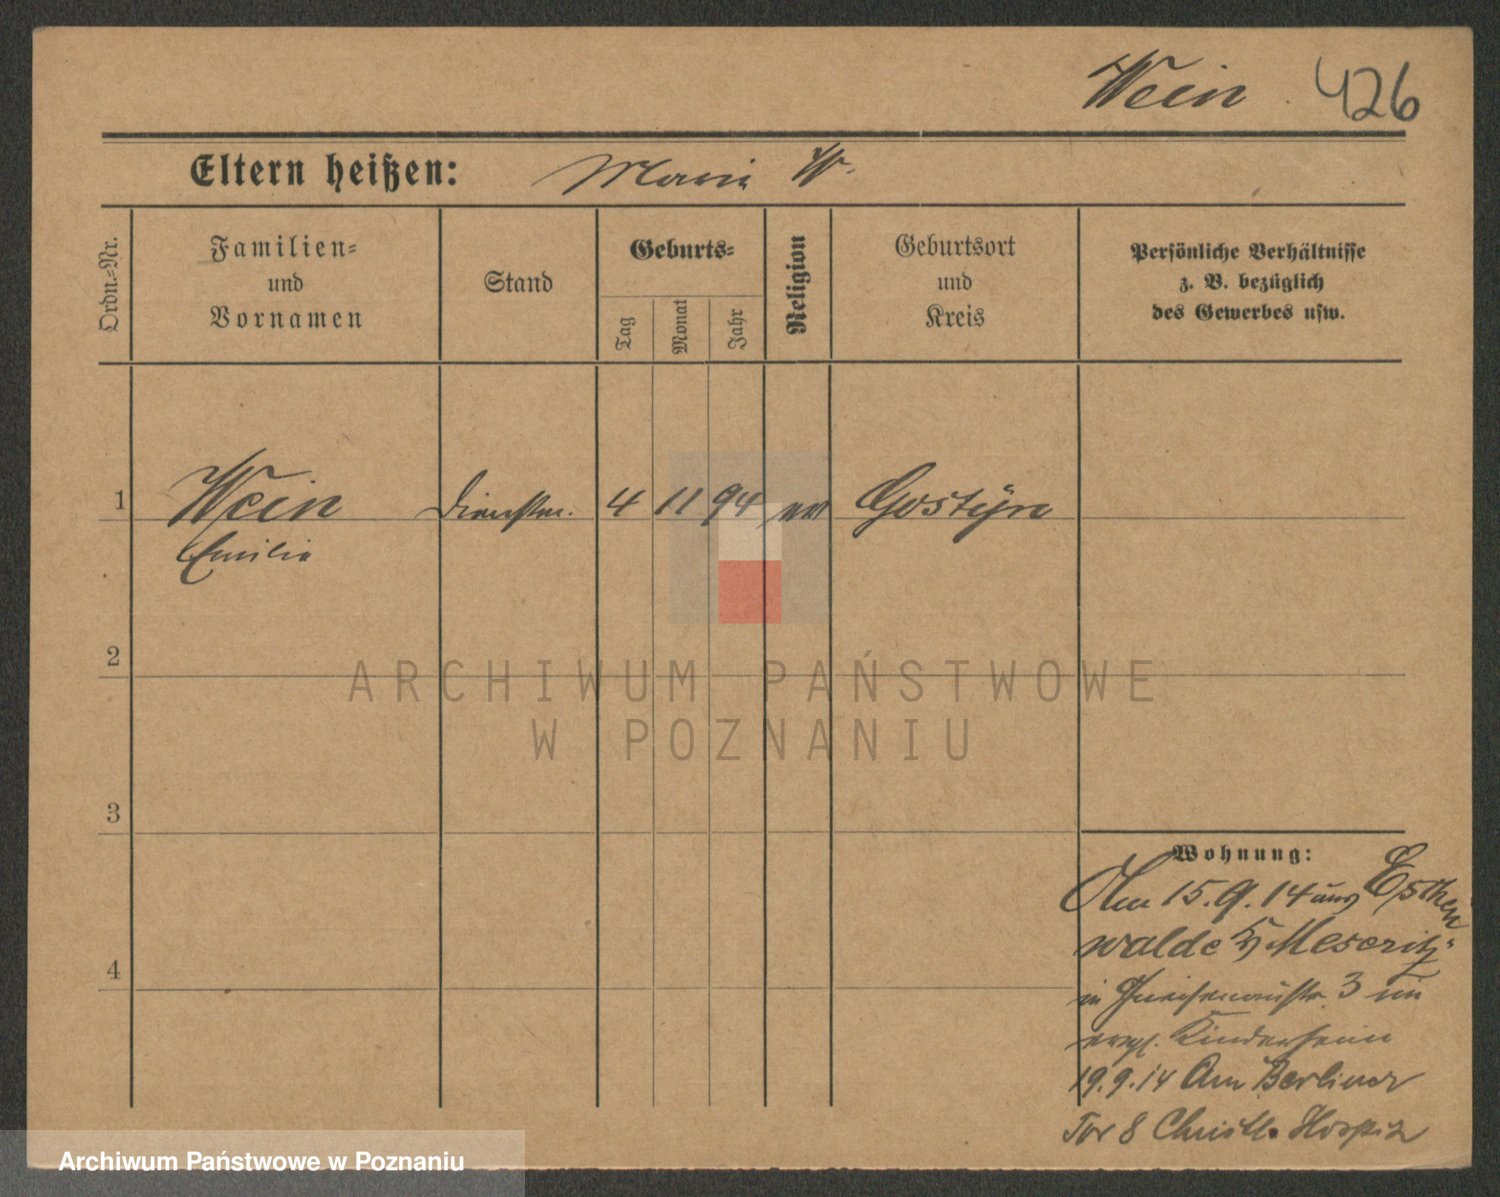 Wein 426
Eltern heißen: Marie W.
Ordn.-Nr.
Familien-
und
Vornamen
Stand
Geburts-
Tag
Monat
Jahr
Religion
Geburtsort
und
Kreis
Persönliche Verhältnisse
z. B. bezüglich
des Gewerbes usw.
1 Wein Dienstm. 4 11 94 ev Gostyn
Emilie
2
3
4
Wohnung:
Am 15.9.14 aus Esthen
walde Kr Meseritz
in Gneisenaustr. 3 im
evgl. Kinderheim
19.9.14 Am Berliner
Tor 8 Christl. Hospiz
ARCHIWUM PAŃSTWOWE
W POZNANIU
Archiwum Państwowe w Poznaniu